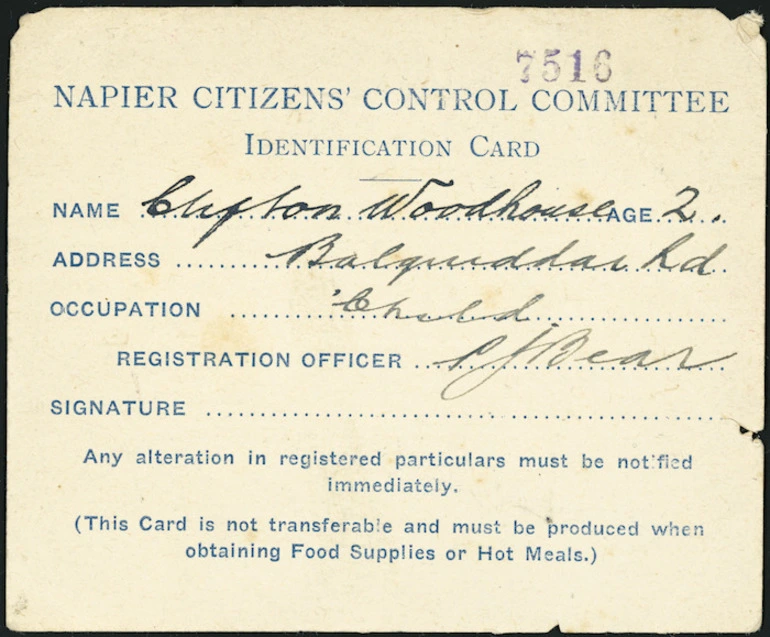 7516
NAPIER CITIZENS' CONTROL COMMITTEE
IDENTIFICATION CARD
NAME Clifton Woodhouse AGE 2.
ADDRESS Balquiddar Rd
OCCUPATION Child.
REGISTRATION OFFICER P J Bear
SIGNATURE
Any alteration in registered particulars must be notified
immediately.
(This Card is not transferable and must be produced when
obtaining Food Supplies or Hot Meals.)